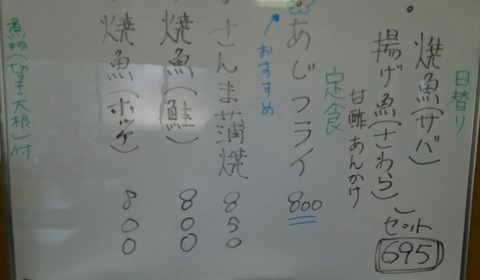 日替り
焼魚(サバ)
揚げ魚(さわら)
甘酢あんかけ
セット
695
定食
あじフライ 800
おすすめ
さんま蒲焼 850
焼魚(鮭) 800
焼魚(ホッケ) 800
煮物(切干大根)付